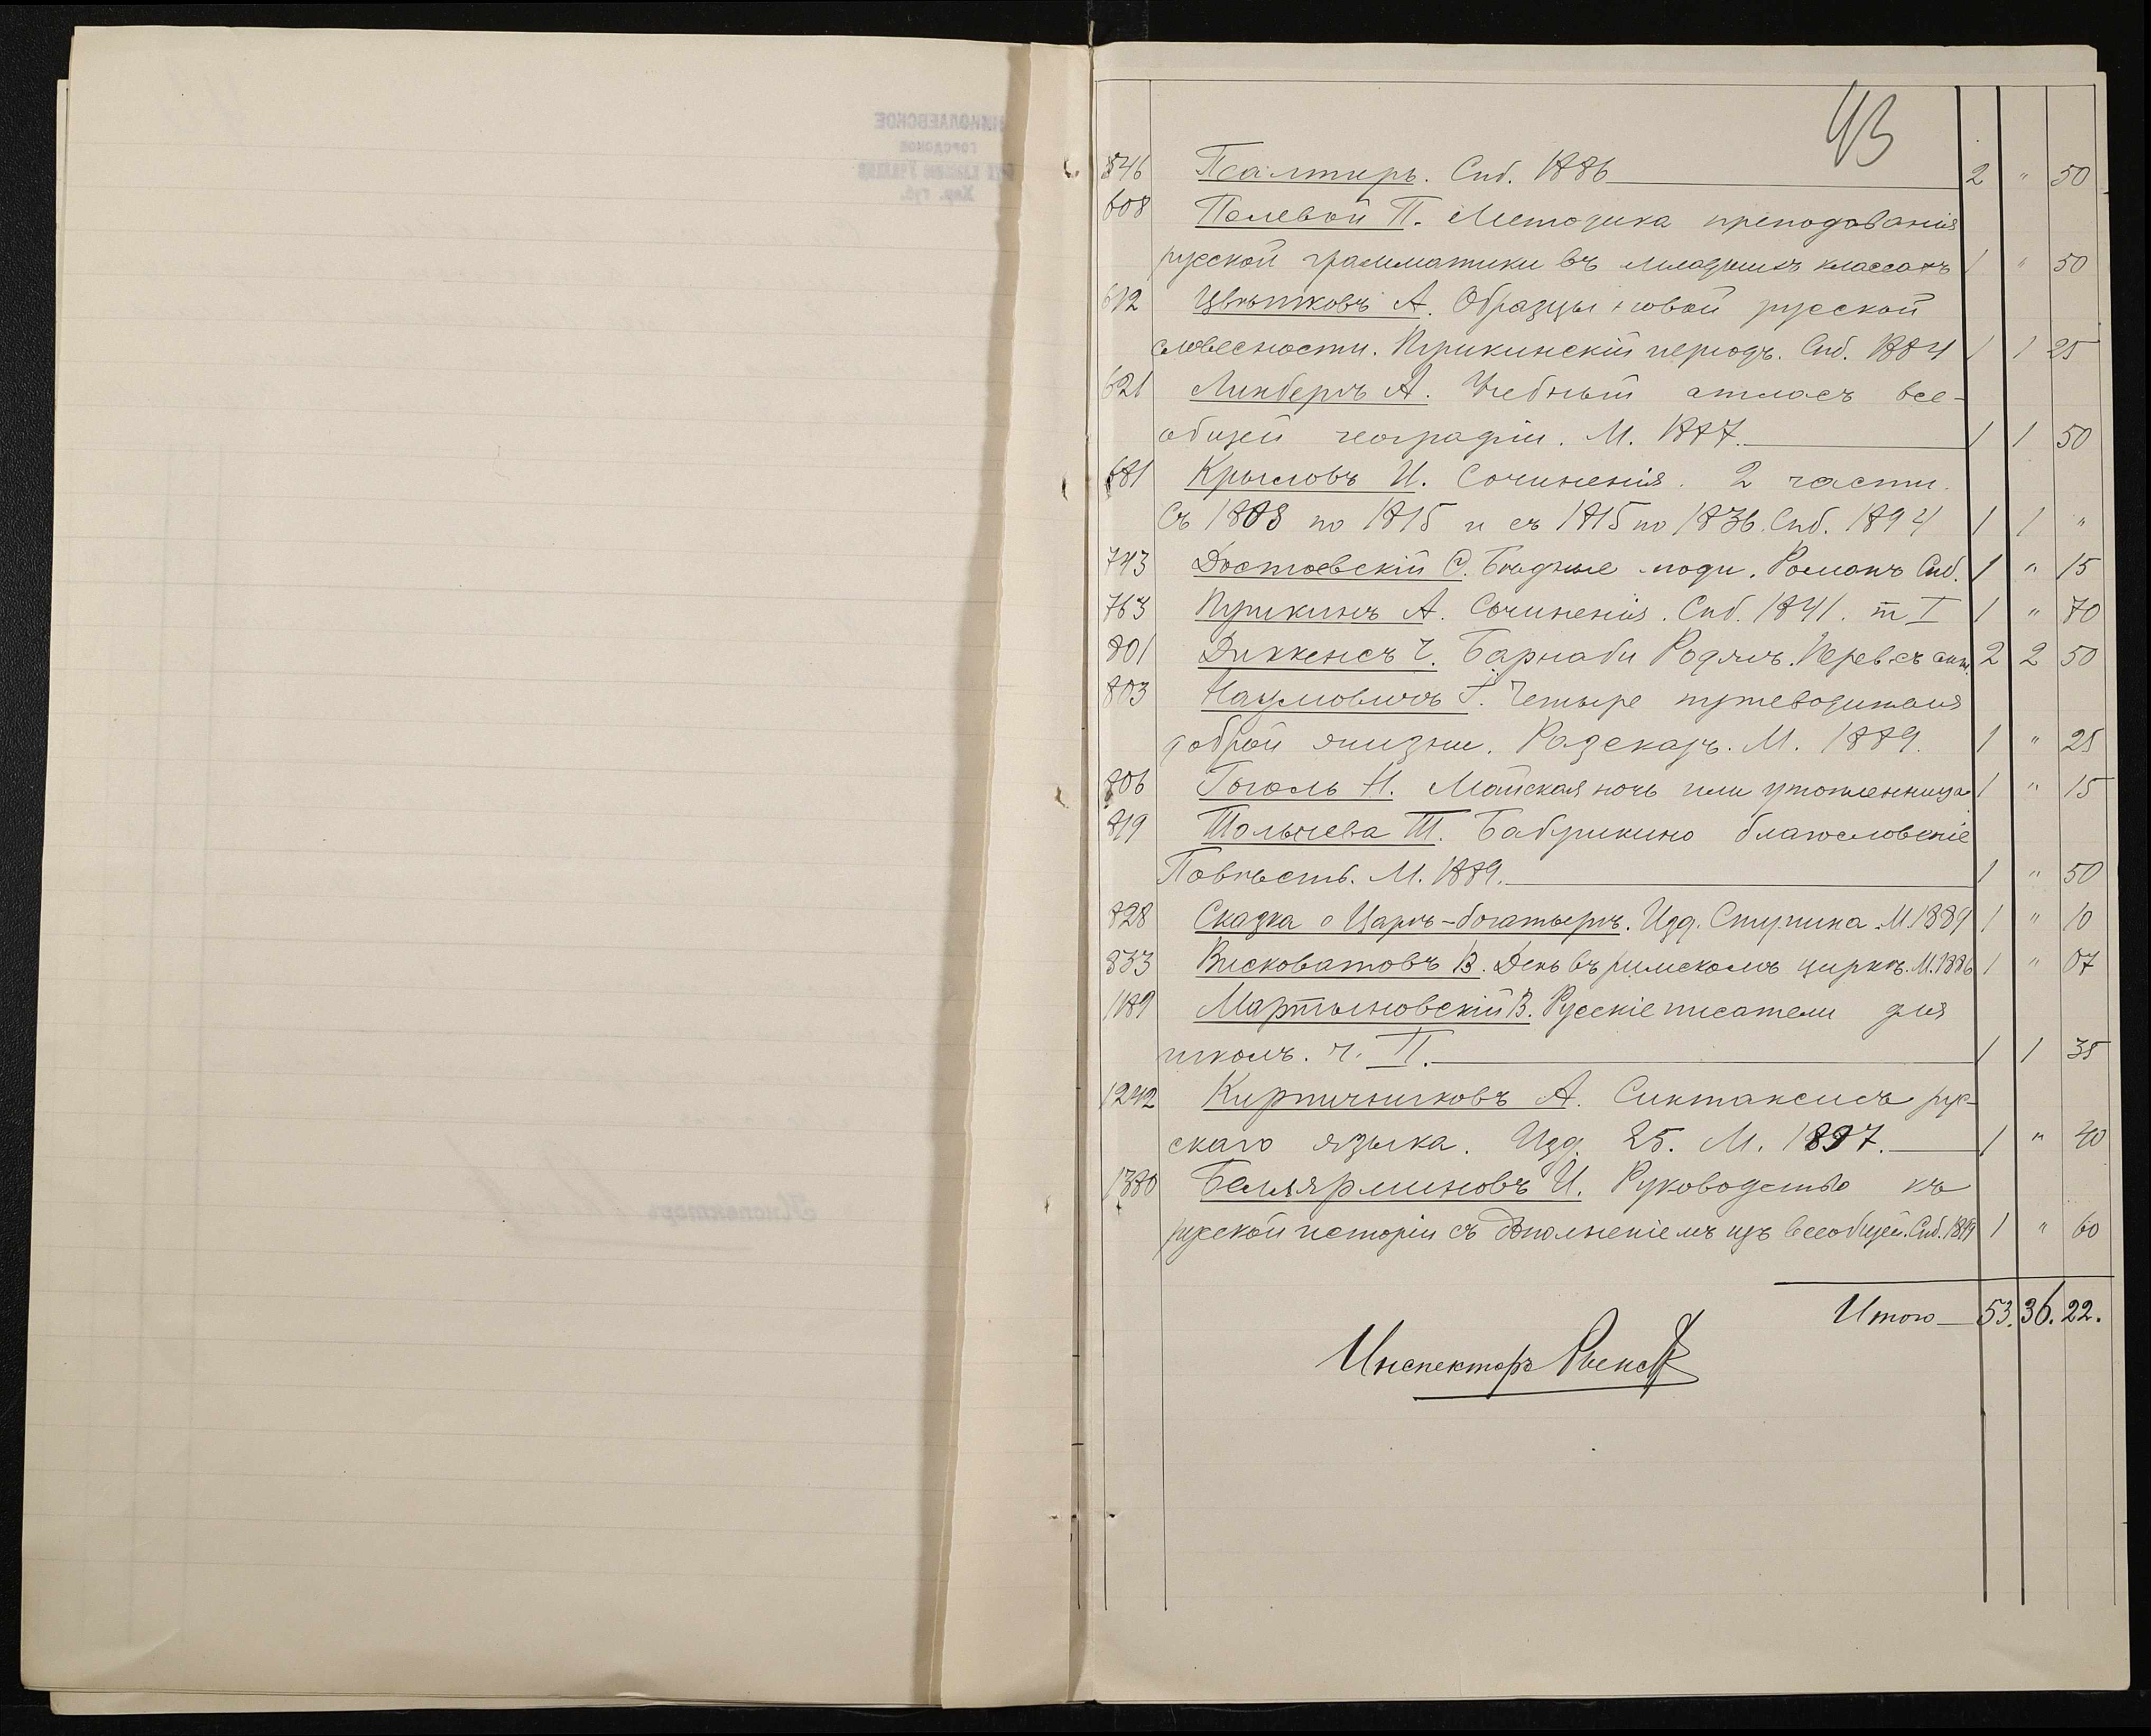 43
546 Псалтирь. Спб. 1886 2 " 50
608 Полевой П. Методика преподованія
русской грамматики въ младшихъ классахъ 1 " 50
612 Цвѣтковъ А. Образцы новой русской
словесности. Пушкинскій періодъ. Спб. 1884 1 1 25
621 Линбергъ А. Учебный атласъ все-
общей географіи. М. 1887. 1 1 50
681 Крыловъ И. Сочиненія. 2 части.
Съ 1808 по 1815 и съ 1815 по 1836. Спб. 1894 1 1 "
743 Достоевскій Ѳ. Бѣдные люди. Романъ Спб. 1 " 15
763 Пушкинъ А. Сочиненія. Спб. 1841. т I 1 " 70
801 Диккенсъ Ч. Барнаби Роджъ. Перев. съ англ. 2 2 50
803 Наумовичъ І. Четыре путеводителя
доброй жизни. Разсказъ. М. 1889. 1 " 25
806 Гоголь Н. Майская ночь или утопленница 1 " 15
819 Толычева Т. Бабушкино благословеніе
Повѣсть. М. 1889. 1 " 50
828 Сказка о Царѣ-богатырѣ. Изд. Ступина. М. 1889 1 " 10
833 Висковатовъ В. День въ римскомъ циркѣ. М. 1886 1 " 07
1189 Мартыновскій В. Русскіе писатели для
школъ. ч. II. 1 1 35
1242 Кирпичниковъ А. Синтаксисъ рус-
скаго языка. Изд. 25. М. 1897. 1 " 40
1380 Беллярминовъ И. Руководство къ
русской исторіи съ дополненіемъ изъ всеобщей. Спб. 1 " 60
Итого 53. 36. 22.
Инспекторъ